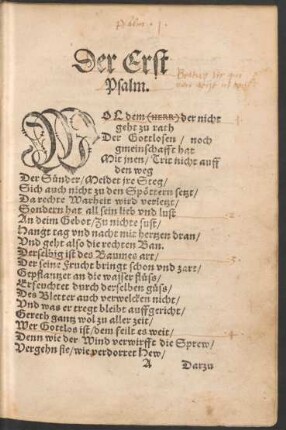 Psalm. 1.
Der Erst
Psalm.
WOL dem (HERR) der nicht
geht zu rath
Der Gottlosen / noch
gmeinschafft hat
Mit jnen / Trit nicht auff
den weg
Der Sünder / Meidet jre Steg /
Sich auch nicht zu den Spöttern setzt /
Da rechte Warheit wird verletzt /
Sondern hat all sein lieb vnd lust
An dem Gebot / Zu nichte sust /
Hangt tag vnd nacht mit hertzen dran /
Vnd geht also die rechten Ban.
Derselbig ist des Baumes art /
Der seine Frucht bringt schon vnd zart /
Gepflantzet an die wasser flüss /
Erfeuchtet durch derselben güss /
Des Bletter auch verwelcken nicht /
Vnd was er tregt bleibt auffgericht /
Gereth gantz wol zu aller zeit /
Wer Gottlos ist / dem feilt es weit /
Denn wie der Wind verwirfft die Sprew /
Vergehn sie / wie verdorret Hew /
A Darzu